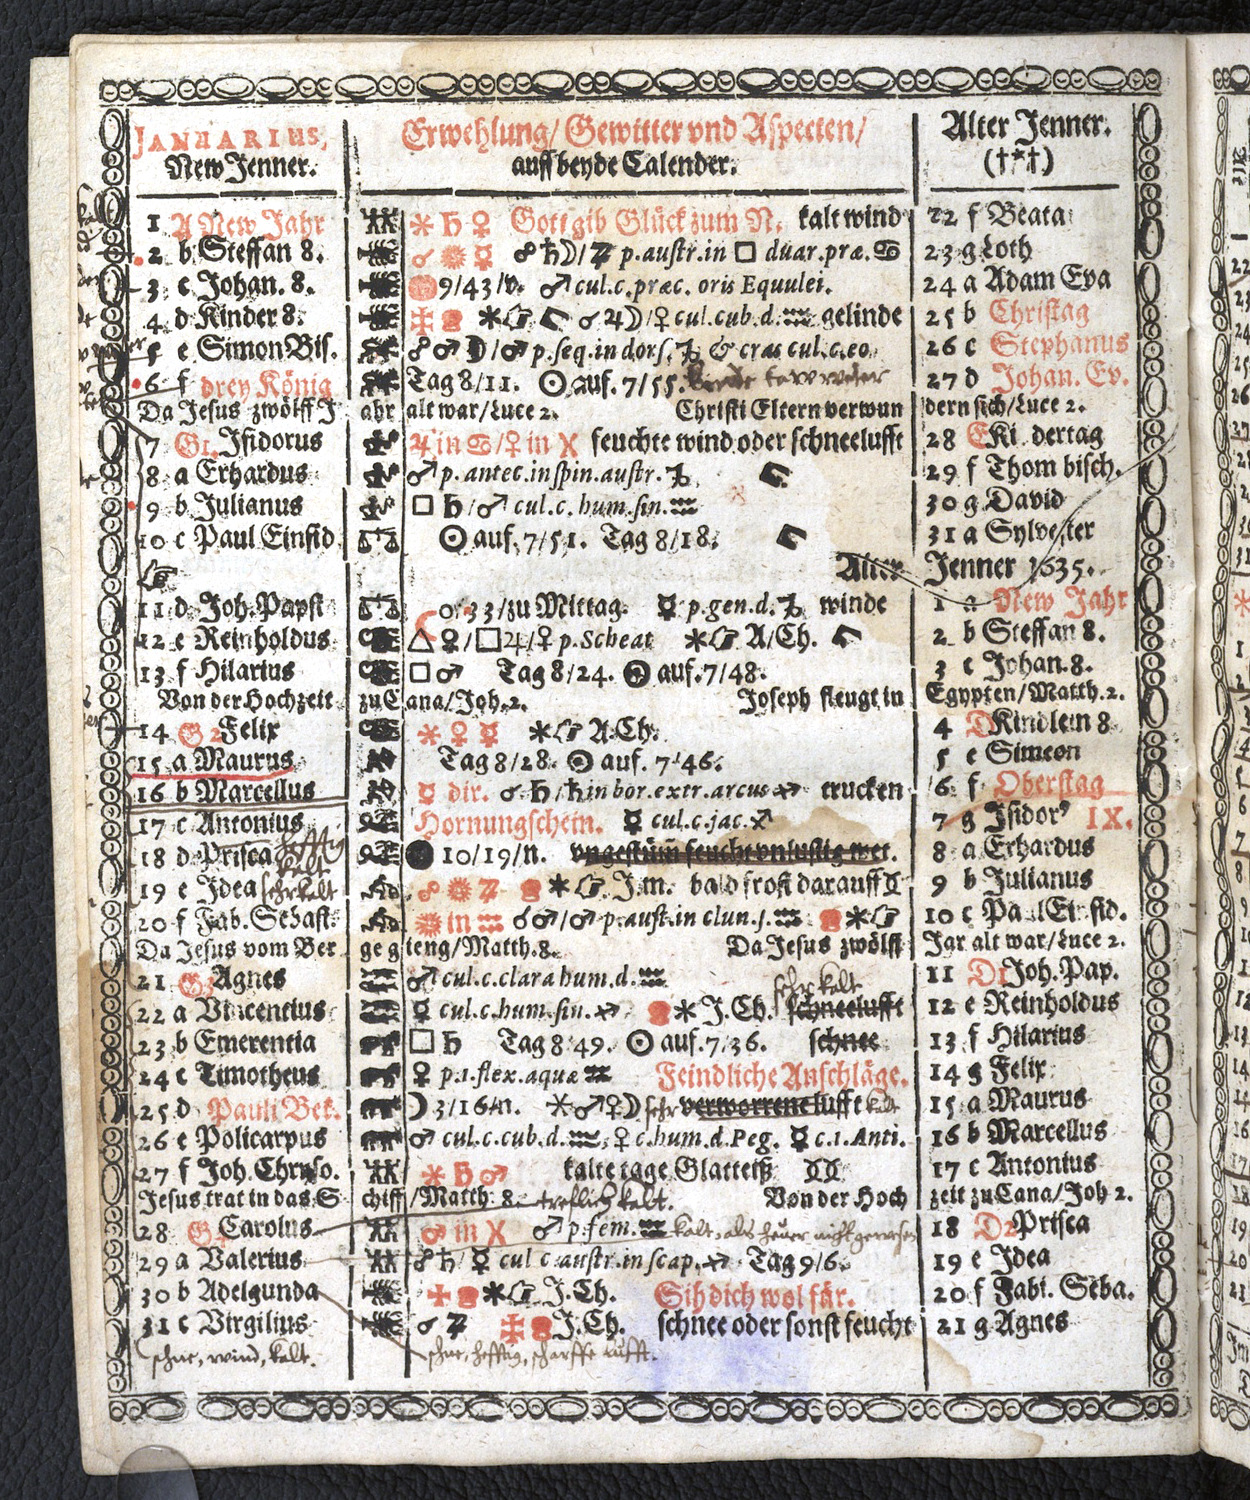 JANUARIUS, Erwehlung/ Gewitter vnd Aspecten/ Alter Jenner.
New Jenner. auff beyde Calender. (†*†)
1 A New Jahr ⚹ ♄ ♀ Gott gib Glück zum N. kalt wind 22 f Beata
2 b Steffan 8. ☌ ☼ ☿ ☍ ♄☽/ p.austr.in □ duar.præ. ♋ 23 g Loth
3 c Johan. 8. 9/43/v. ♂ cul.c.præc. oris Equulei. 24 a Adam Eva
4 d Kinder 8. ⚹☞ ☌ ♃☽/♀ cul.cub.d.♒ gelinde 25 b Christag
5 e Simon Bis. ☍ ♂ ☽/♂ p.seq.in dors.♑ & cras cul.c.eo. 26 c Stephanus
6 f drey König Tag 8/11. ☉ auf. 7/55. 27 d Johan. Ev.
Da Jesus zwölff J ahr alt war/Luce 2. Christi Eltern verwun dern sich/Luce 2.
7 G1. Isidorus ♃ in ♋/♀ in X feuchte wind oder schneelufft 28 E Ki dertag
8 a Erhardus ♂ p. antec.in spin.austr.♑ 29 f Thom bisch.
9 b Julianus □ ♄/♂ cul.c. hum.sin.♒ 30 g David
10 c Paul Einsid ☉ auf. 7/51. Tag 8/18. 31 a Sylvester
☞ Alter Jenner 1635.
11 d Joh. Papst 0.33/zu Mittag. ☿ p.gen.d.♑ winde 1 a New Jahr
12 e Reinholdus △ ♀/□♃/♀ p.Scheat ⚹☞ A/Ch. 2 b Steffan 8.
13 f Hilarius □ ♂ Tag 8/24. ☉ auf.7/48. 3 c Johan.8.
Von der Hochzeit zu C ana/Joh.2. Joseph fleugt in Egypten/Matth.2.
14 G 2 Felix ⚹ ♀ ☿ ⚹☞ A.Ch. 4 D Kindlein 8
15 a Maurus Tag 8/28. ☉ auf. 7/46. 5 e Simeon
16 b Marcellus ☿ dir. ☌ ♄/♄ in bor.extr.arcus ♐ trucken 6 f Oberstag
17 c Antonius Hornungschein. ☿ cul.c.jac.♐ 7 g Isidor⁹ IX.
18 d Prisca ● 10/19/n. vngestüm feucht vnlustig wet. 8 a Erhardus
kalt
19 e Idea sehr kalt ☍ ☼ ⚹☞ J.m. bald frost darauff 9 b Julianus
20 f Fab. Sebast. ☼ in ♒ ☌♂/♂ p.aust.in clun.♑.♒ ⚹☞ 10 c Pa l Einsid.
Da Jesus vom Ber ge gieng/Matth.8. Da Jesus zwölff Jar alt war/Luce 2.
21 G3 Agnes ♂ cul.c.clara hum.d.♒ sehr kalt 11 D1 Joh. Pap.
22 a Vincentius ☿ cul.c.hum.sin.♐ ⚹ J.Ch. schneelufft 12 e Reinholdus
23 b Emerentia □ ♄ Tag 8/49. ☉ auf.7/36. schnee 13 f Hilarius
24 c Timotheus ♀ p.1.flex.aquæ ♒ Feindliche Anschläge. 14 g Felix
25 d Pauli Bek. ☽ 3/16/n. ⚹♂♀☽ sehr verworrene lufft kalt 15 a Maurus
26 e Policarpus ♂ cul.c.cub.d.♒/♀ c.hum.d.Peg. ☿ c.1.Anti. 16 b Marcellus
27 f Joh. Chryso. ⚹ ♄ ♂ kalte tage Glatteiß 17 c Antonius
Jesus trat in das S chiff /Matth. 8. trefflich kalt. Von der Hoch zeit zu Cana/Joh 2.
28 G4 Carolus ♂ in X ♂ p.fem.♒ kalt, als heuer nicht gewesen 18 D2 Prisca
29 a Valerius ☍ ♄/☿ cul c.austr.in scap.♐ Tag 9/6. 19 e Idea
30 b Adelgunda ⚹☞ J.Ch. Sih dich wol für. 20 f Fabi. Seba.
31 c Virgilius ☌ J.Ch. schnee oder sonst feucht 21 g Agnes
schne, wind, kalt. schne, hefftig, scharffe lufft.